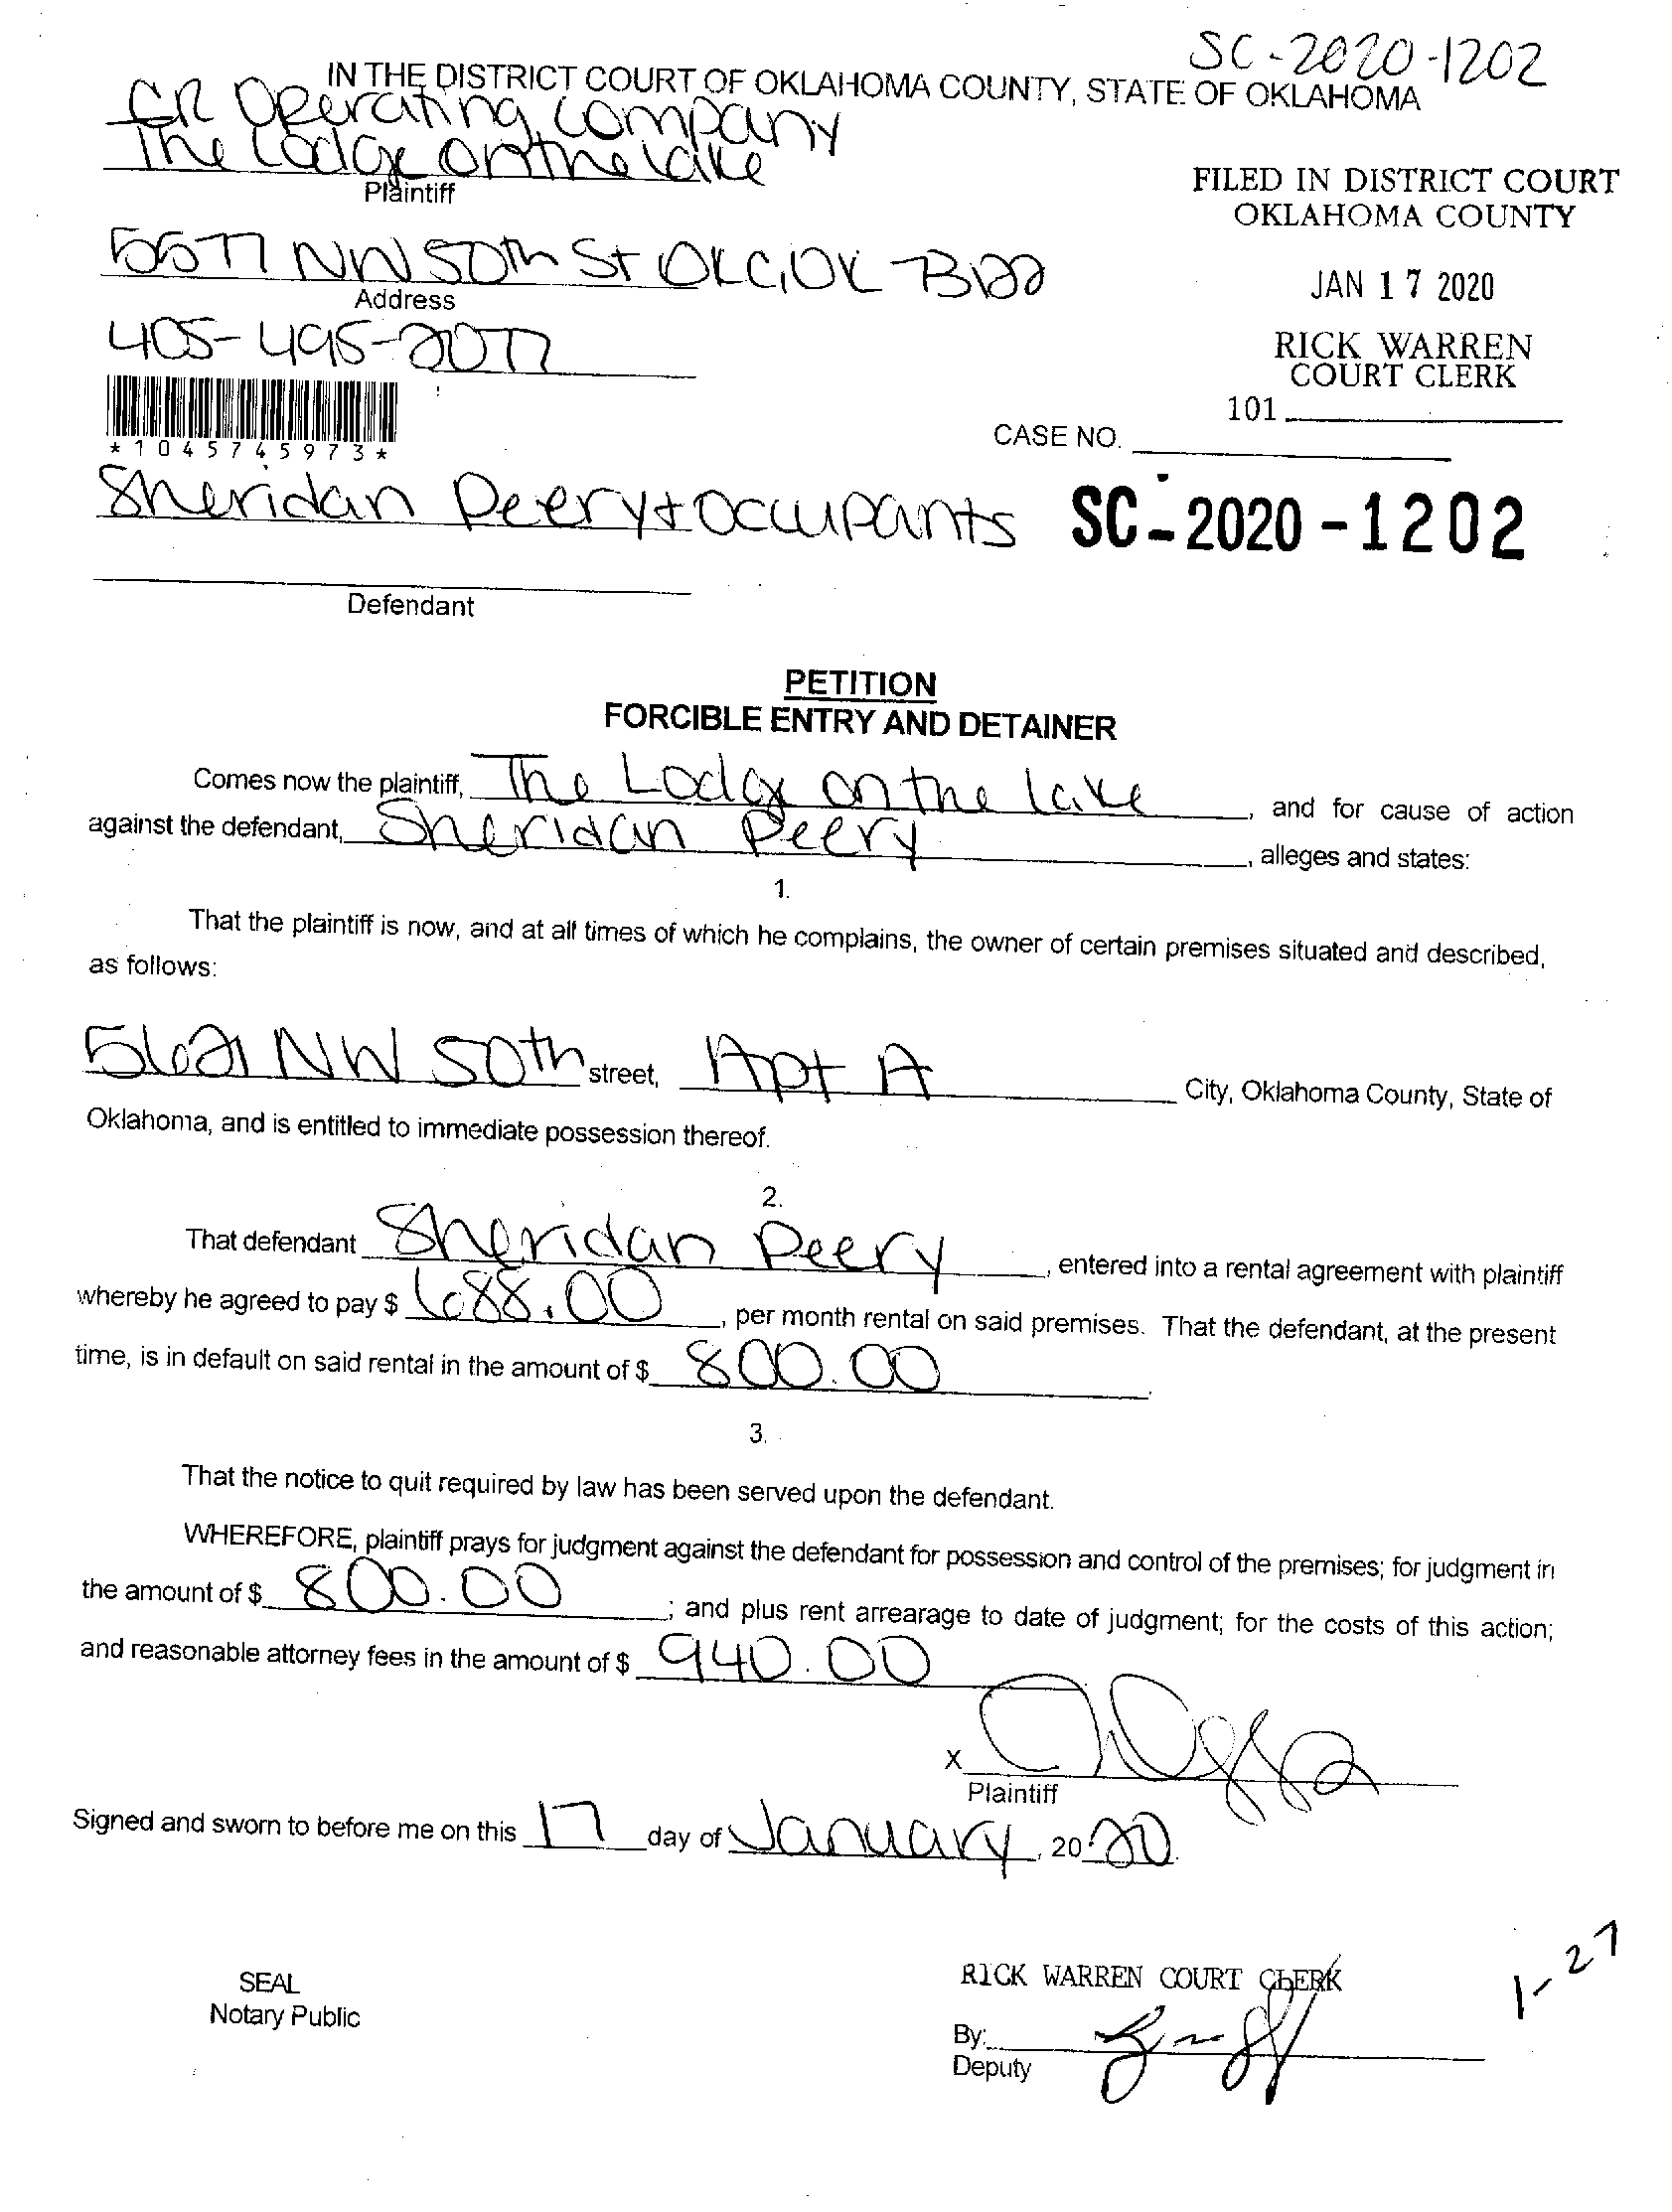 SC-2020-1202
IN THE DISTRICT COURT OF OKLAHOMA COUNTY, STATE OF OKLAHOMA
CR Operating Company
The Lodge on the lake
Plaintiff
FILED IN DISTRICT COURT
OKLAHOMA COUNTY
5577 NW 50th St OKC, OK 73122
Address
JAN 17 2020
405-495-2077
RICK WARREN
COURT CLERK
101
*1045745973*
CASE NO.
Sheridan Peery + Occupants
SC-2020-1202
Defendant
PETITION
FORCIBLE ENTRY AND DETAINER
Comes now the plaintiff, The Lodge on the lake, and for cause of action
against the defendant, Sheridan Peery, alleges and states:
1.
That the plaintiff is now, and at all times of which he complains, the owner of certain premises situated and described,
as follows:
5621 NW 50th street, Apt A City, Oklahoma County, State of
Oklahoma, and is entitled to immediate possession thereof.
2.
That defendant Sheridan Peery, entered into a rental agreement with plaintiff
whereby he agreed to pay $ 688.00, per month rental on said premises. That the defendant, at the present
time, is in default on said rental in the amount of $ 800.00.
3.
That the notice to quit required by law has been served upon the defendant.
WHEREFORE, plaintiff prays for judgment against the defendant for possession and control of the premises; for judgment in
the amount of $ 800.00; and plus rent arrearage to date of judgment; for the costs of this action;
and reasonable attorney fees in the amount of $ 940.00
X
Plaintiff
Signed and sworn to before me on this 17 day of January, 2020.
1-27
SEAL
Notary Public
RICK WARREN COURT CLERK
By:
Deputy